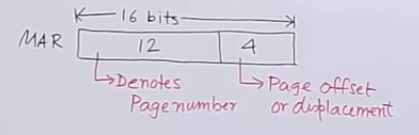 16 bits
MAR
12
4
Denotes
Page number
Page offset
or displacement